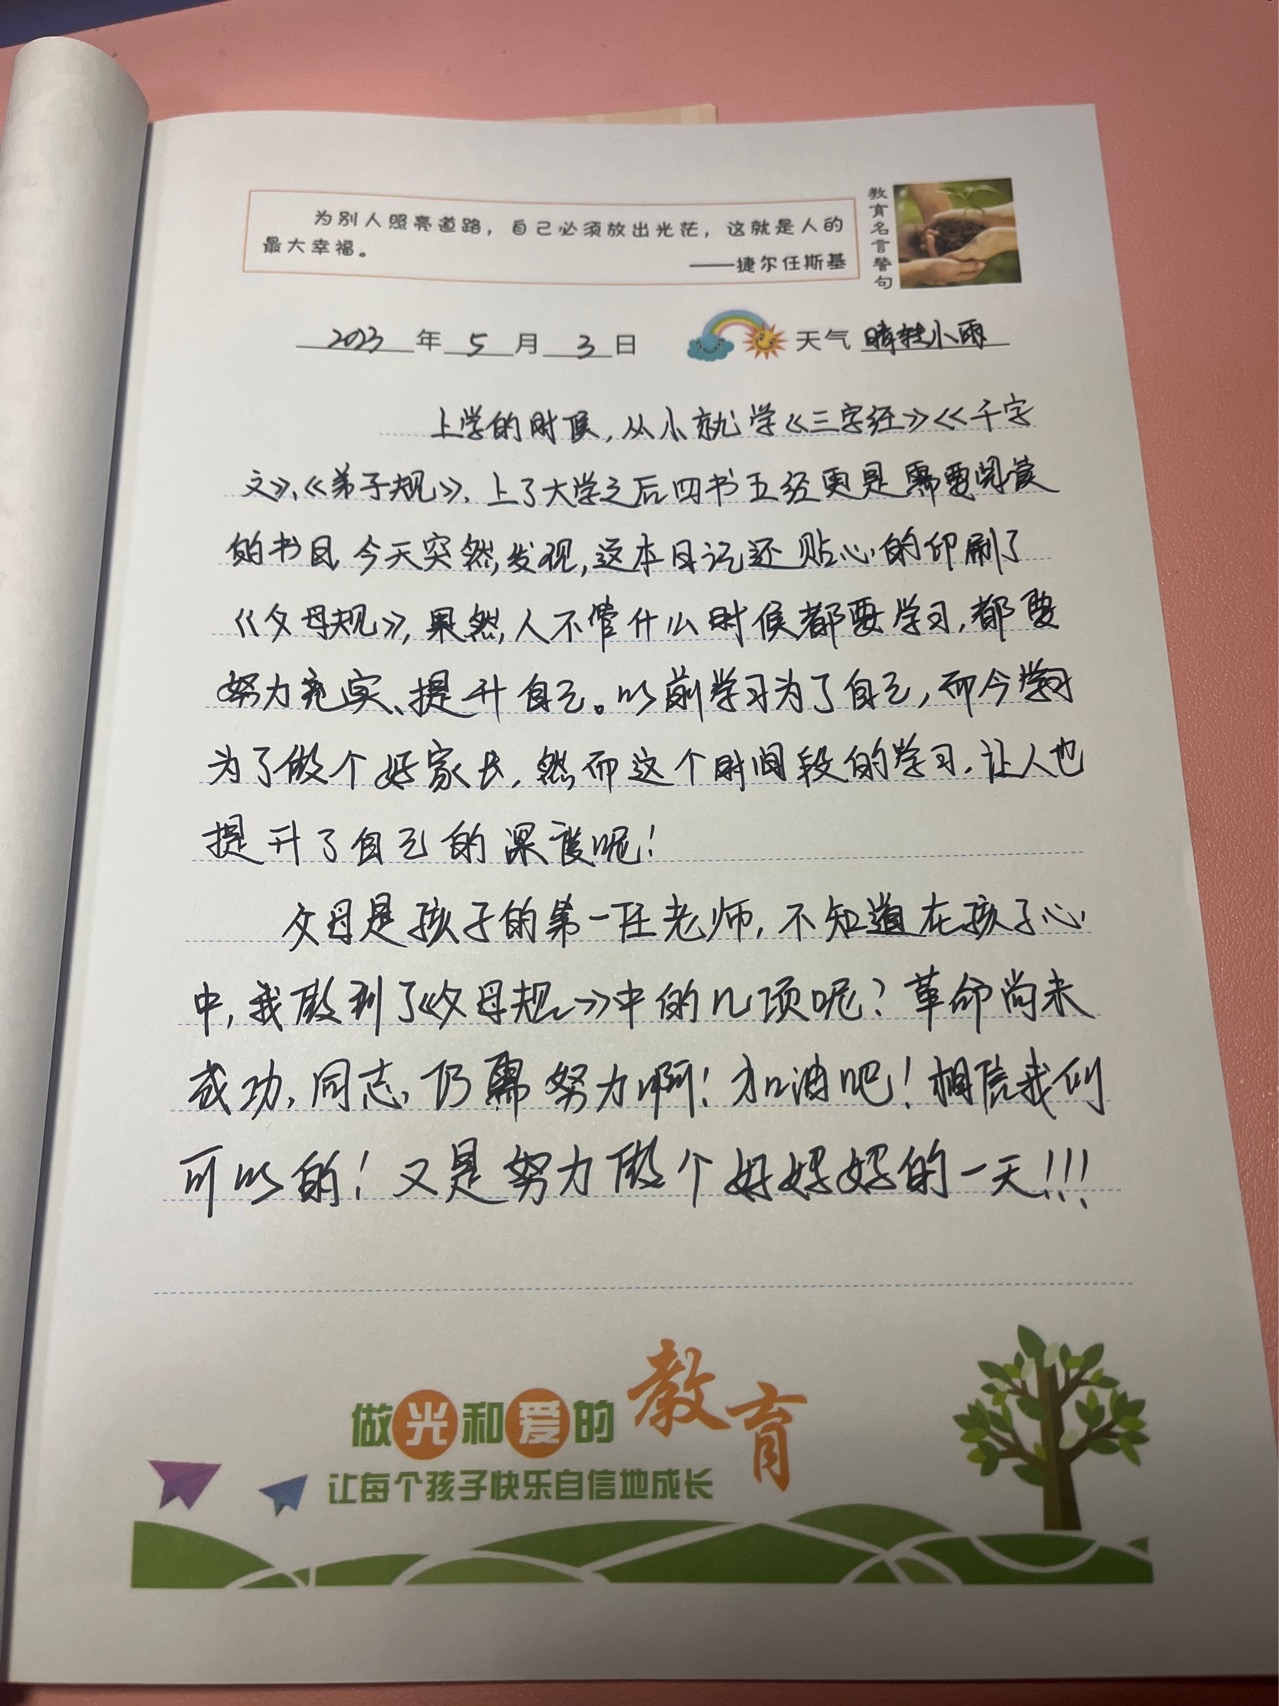 为别人照亮道路，自己必须放出光茫，这就是人的
最大幸福。
——捷尔任斯基
教育名言警句
2023年5月3日 天气 晴转小雨
上学的时候，从小就学《三字经》《千字
文》、《弟子规》，上了大学之后四书五经更是需要阅读
的书目，今天突然发现，这本日记还贴心的印刷了
《父母规》，果然，人不管什么时候都要学习，都要
努力充实、提升自己。以前学习为了自己，而今学习
为了做个好家长，然而这个时间段的学习，让人也
提升了自己的深度呢！
父母是孩子的第一任老师，不知道在孩子心
中，我做到了《父母规》中的几项呢？革命尚未
成功，同志，仍需努力啊！加油吧！相信我们
可以的！又是努力做个好妈妈的一天!!!
做光和爱的教育
让每个孩子快乐自信地成长